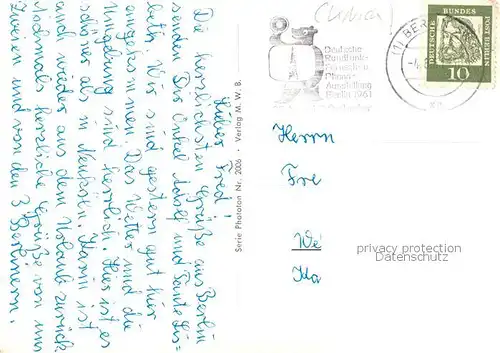 Lieber Fred!
Die herzlichsten Grüße aus Berlin
senden Dir Onkel Adolf und Tante Lis=
beth. Wir sind gestern gut hier
angekommen. Das Wetter und die
Umgebung sind herrlich. Hier ist es
schöner als in Neukölln. Karin ist
auch wieder aus dem Urlaub zurück.
Nochmals herzliche Grüße von uns
Zweien und von den 3 Berlinern.
Serie Phaeton Nr. 2006 • Verlag M. W. B.
Deutsche
Rundfunk-
Fernseh- u
Phono-
Ausstellung
Berlin 1961
(1) BERL
DEUTSCHE BUNDES POST BERLIN
10
Herrn
Fre
We
Ka
privacy protection
Datenschutz